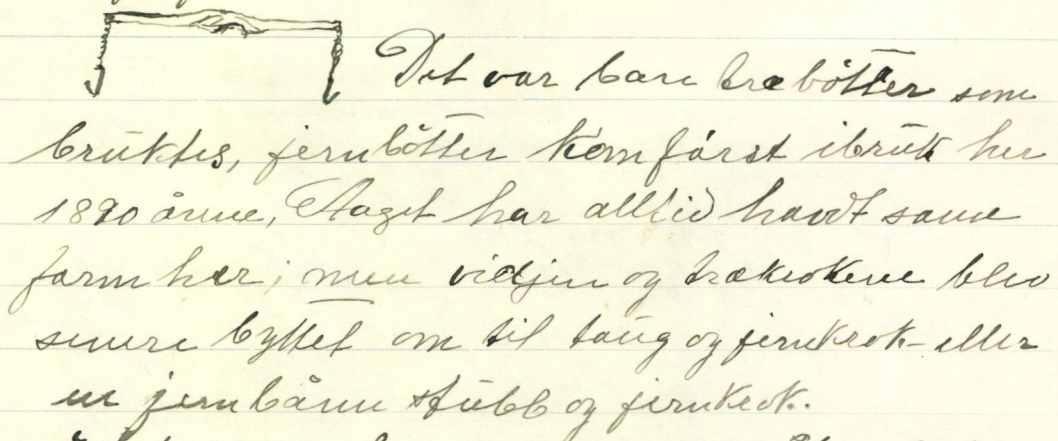 Det var bare træbøtter som
bruktes, jernbøtter kom først ibruk her
1890 årene, Aaget har alltid havdt same
form her; men vidjen og trækrokene blev
senere byttet om til taug og jernkrok- eller
en jernbånn stubb og jernkrok.